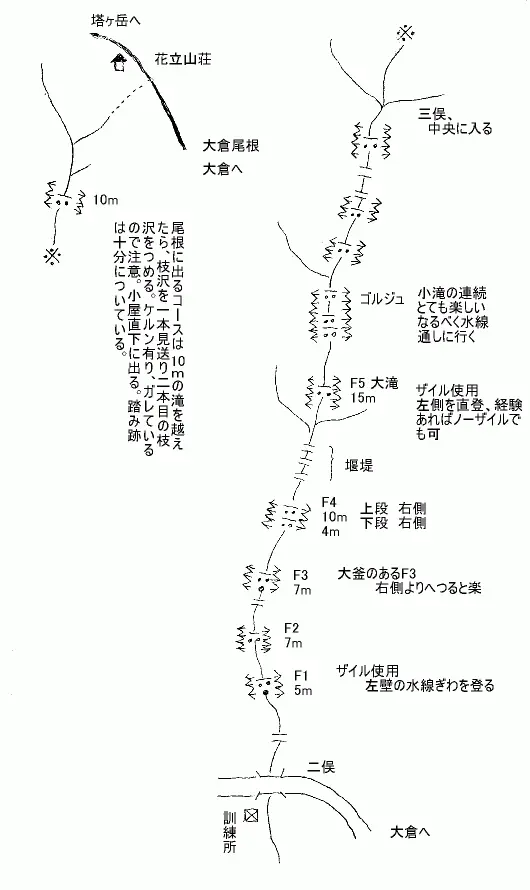 塔ヶ岳へ
花立山荘
大倉尾根
大倉へ
10m
※
尾根に出るコースは10mの滝を越え
たら、枝沢を一本見送り二本目の枝
沢をつめる。ケルン有り、ガレている
ので注意。小屋直下に出る。踏み跡
は十分についている。
※
三俣、
中央に入る
ゴルジュ
小滝の連続
とても楽しい
なるべく水線
通しに行く
F5 大滝
15m
ザイル使用
左側を直登、経験
あればノーザイルで
も可
堰堤
F4
10m
4m
上段 右側
下段 右側
F3
7m
大釜のあるF3
右側よりへつると楽
F2
7m
F1
5m
ザイル使用
左壁の水線ぎわを登る
二俣
訓練所
大倉へ